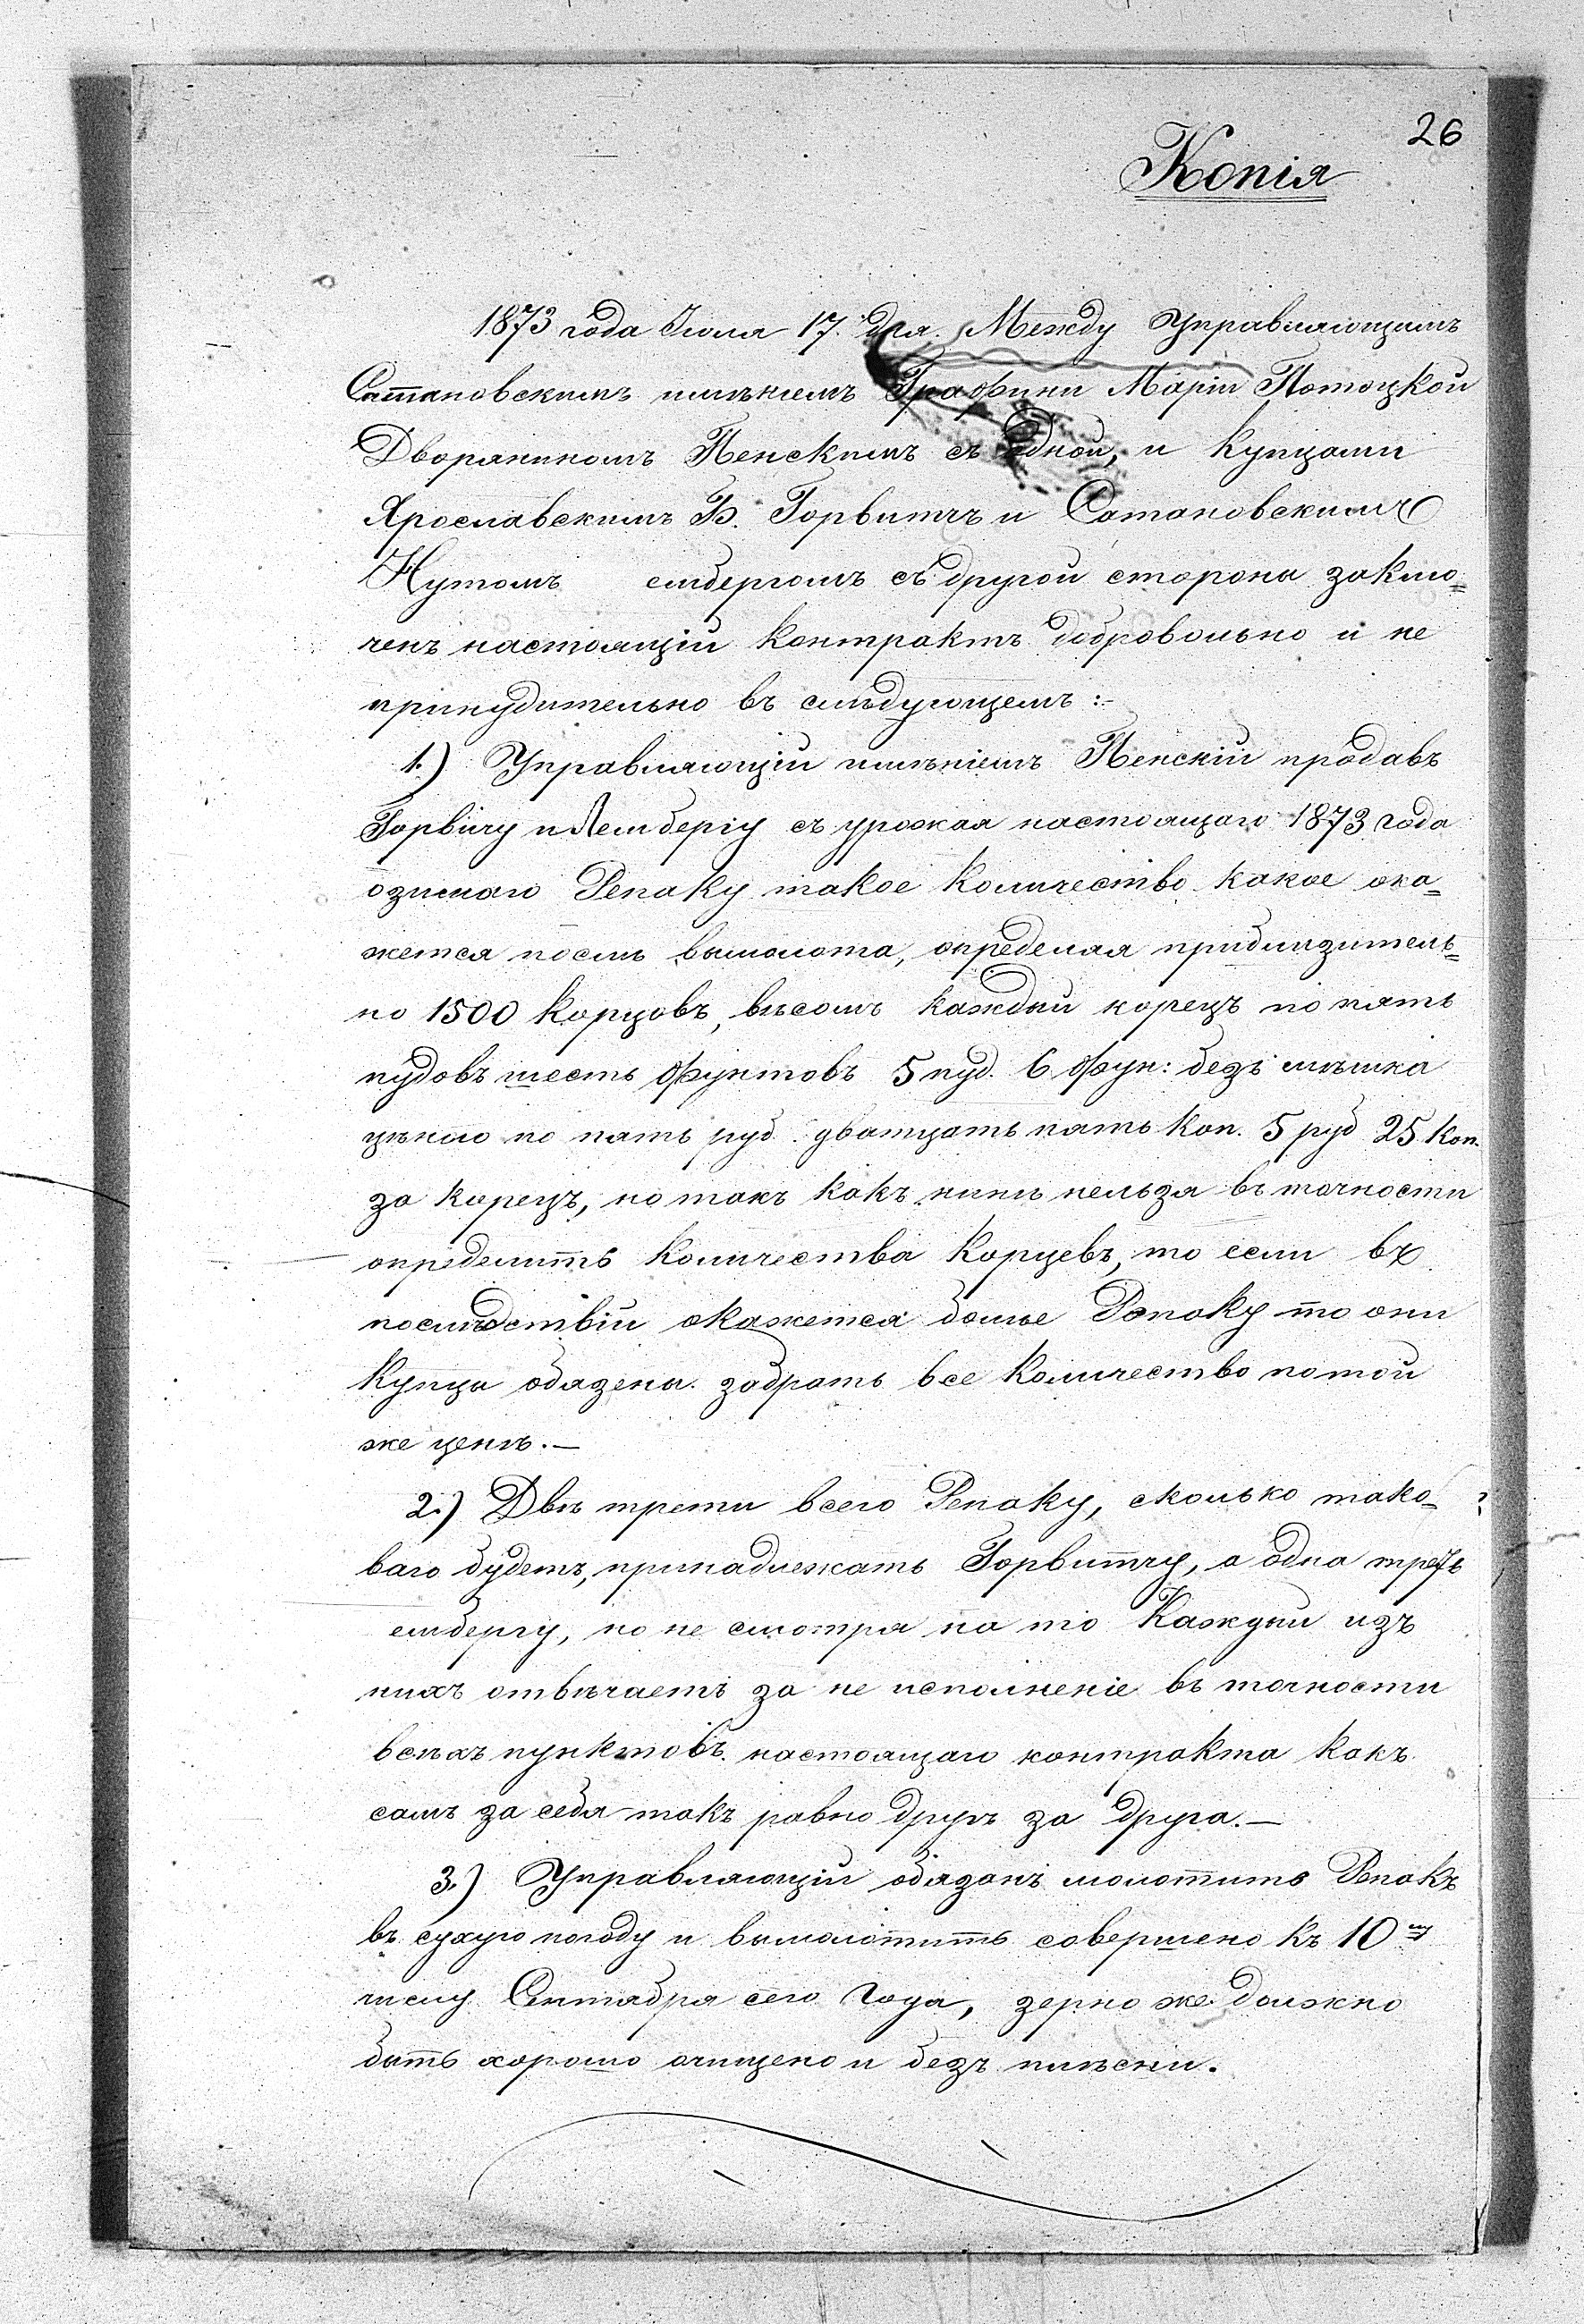 26
Копія
1873 года Іюля 17. дня. Между Управляющимъ
Сатановскимъ имѣніемъ Графини Маріи Потоцкой
Дворяниномъ Пенскимъ съ одной, и купцами
Ярославскимъ Б. Горвитчъ и Сатановскимъ
Нутомъ ембергомъ съ другой стороны заклю=
ченъ настоящій контрактъ добровольно и не
принудительно въ слѣдующемъ:-
1.) Управляющій имѣніемъ Пенскій продавъ
Горвічу и Лембергу съ урожая настоящаго 1873 года
озимаго Репаку такое количество какое ока=
жется послѣ вымолота, определяя приблизитель=
но 1500 корцовъ, вѣсомъ каждый корецъ по пять
пудовъ шесть фунтовъ 5 пуд. 6 фун: безъ мѣшка
цѣною по пять руб. дватцать пять коп. 5 руб 25 коп.
за корецъ, но такъ какъ нинѣ нельзя въ точности
определить количества корцевъ, то если въ
послѣдствіи окажется болѣе Репаку то они
купцы обязены забрать все количество по той
же ценѣ.—
2.) Двѣ трети всего Репаку, сколько тако=
ваго будетъ, принадлежать Горвитчу, а одна треть
ембергу, но не смотря на то каждый изъ
нихъ отвѣчаетъ за не исполненіе въ точности
всѣхъ пунктовъ настоящаго контракта какъ
самъ за себя такъ равно другъ за друга.—
3.) Управляющій обязанъ молотить Репакъ
въ сухую погоду и вымолотить совершено къ 10му
числу Сентября сего года, зерно же должно
быть хорошо очищено и безъ плѣсни.